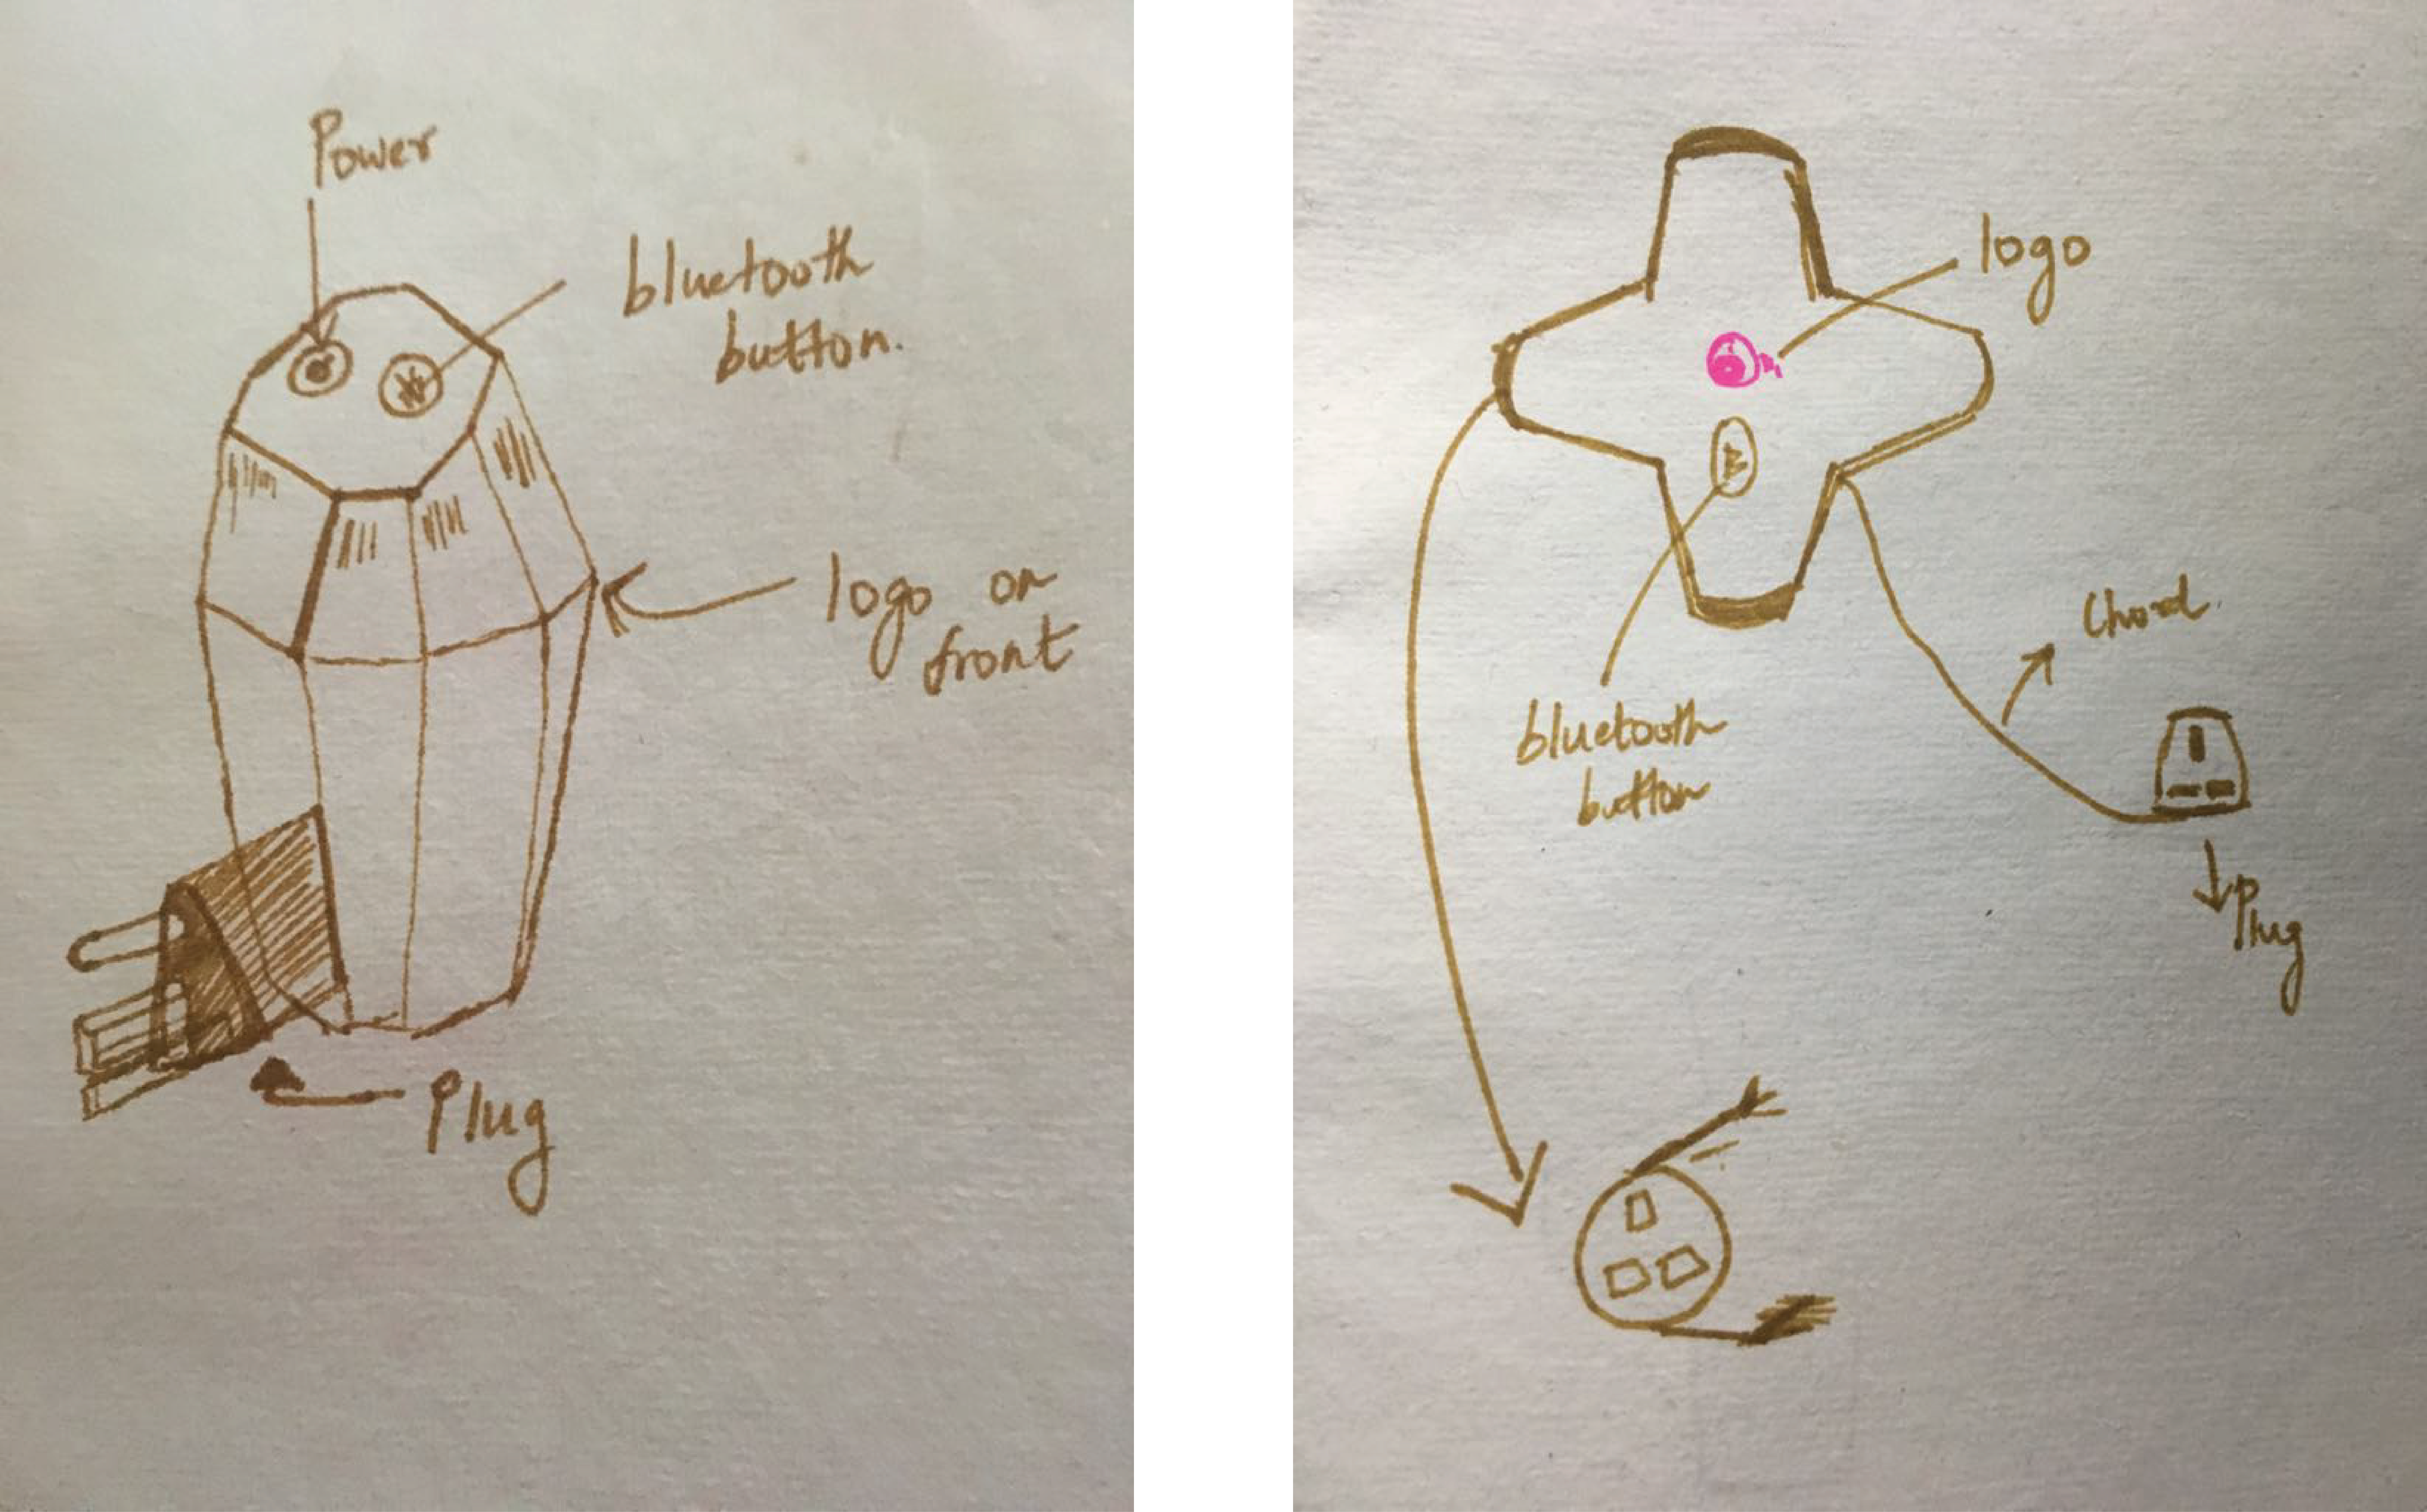 Power
bluetooth
button.
logo on
front
Plug
logo
B
bluetooth
button
Chord
Plug